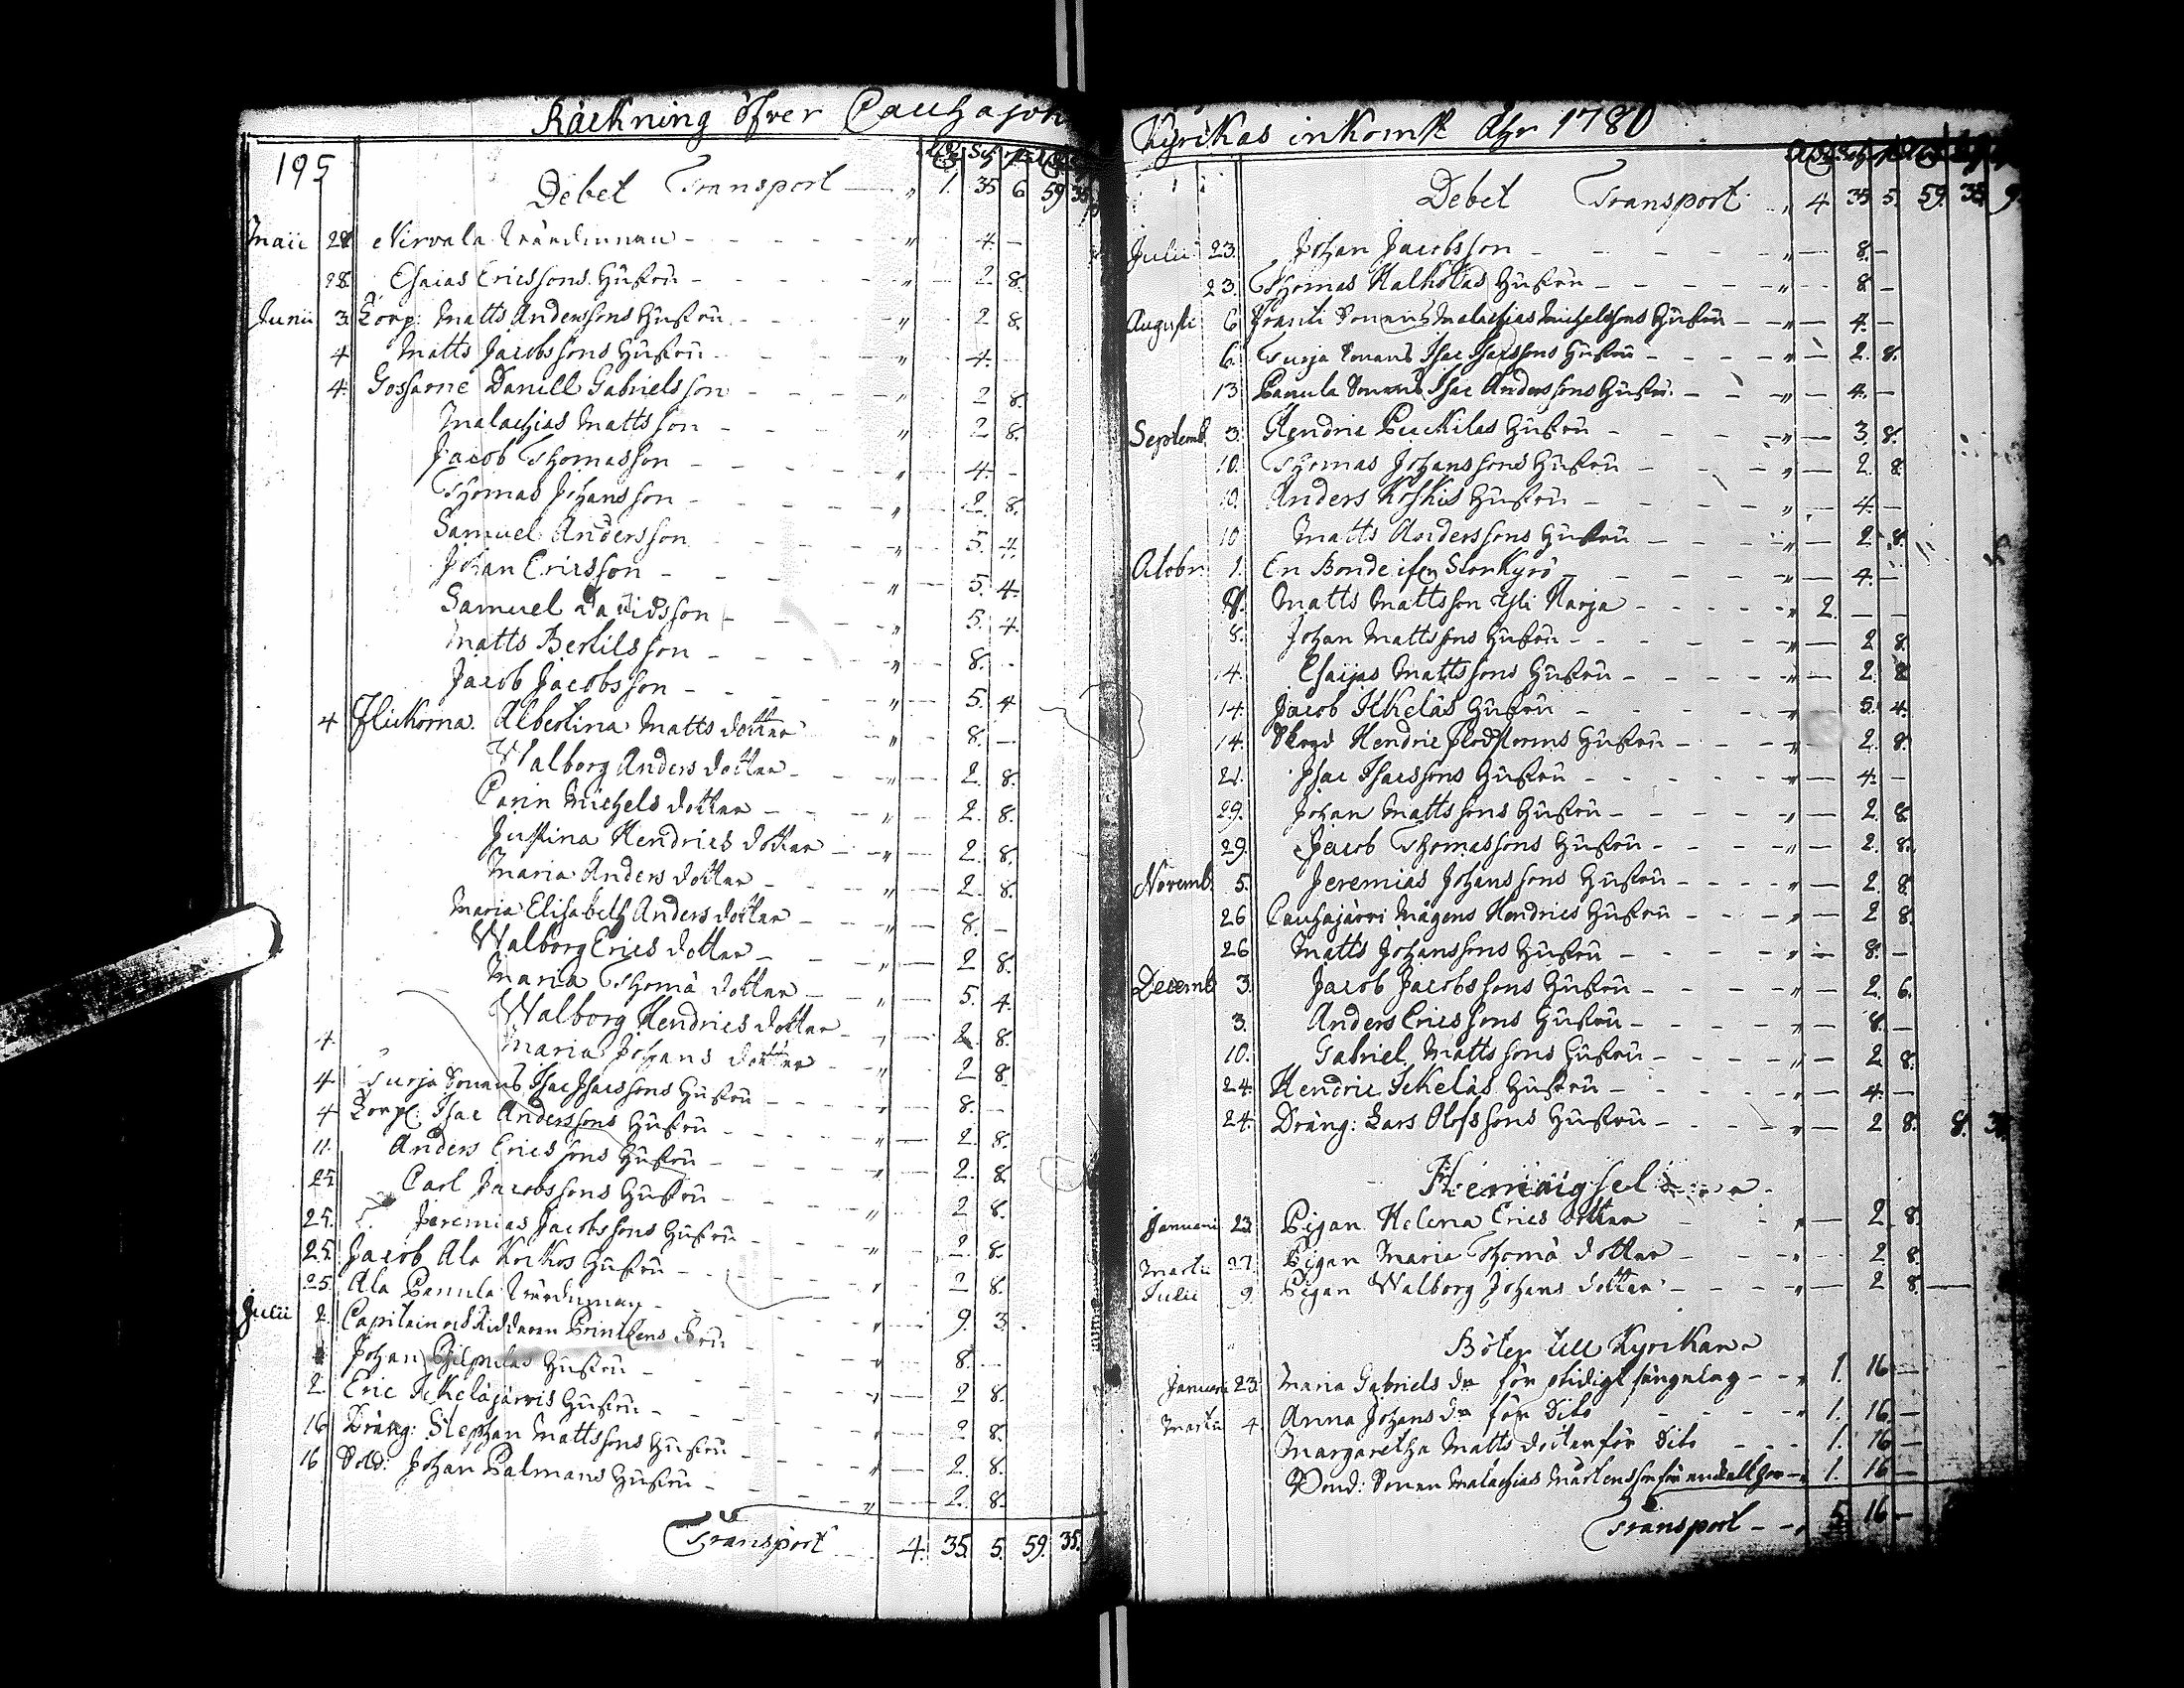 Räckning öfver Cauhajok
195
Debet Transport — „ 1. 35 6 59 35
Maii 28 Nirvala Värdinnan - - - „ 4. —
28. Esaias Ericssons Hustru - - - „ 2. 8.
Junii 3. Korp: Matts Anderssons Hustru - - - „ 2. 8.
4 Matts Jacobssons Hustru - - - „ 4. —
4. Gossarne Daniell Gabrielsson - - - „ 2 8.
Malachias Mattsson - - - „ 2 8.
Jacob Thomasson - - - „ 4. -
Thomas Johansson - - - „ 2. 8.
Samuel Andersson - - - „ 5. 4.
Johan Ericsson - - - „ 5. 4.
Samuel Davidsson - - - „ 5. 4.
Matts Bertilsson - - - „ 8. -
Jacob Jacobsson - - - „ 5. 4
4 Flickorna. Albertina Matts dotter - - „ 8. —
Walborg Anders dotter - - „ 2. 8.
Carin Michels dotter - - „ 2. 8.
Justina Hendrics dotter - - „ 2. 8.
Maria Anders dotter - - „ 2. 8.
Maria Elisabeth Anders dotter - - „ 8. -
Walborg Erics dotter - - „ 2 8.
Maria Thomä dotter - - „ 5. 4.
Walborg Hendrics dotter - „ 2. 8.
4. Maria Johans dotter - - „ 2 8
4 Turja Sonens Isac Isacssons Hustru - - „ 8. -
4 Korpl: Isac Anderssons Hustru - - „ 2. 8.
11. Anders Ericssons Hustru - - „ 2. 8
25 Carl Jacobssons Hustru - - „ 2 8.
25. Jeremias Jacobssons Hustru - - „ 2. 8.
25. Jacob Ala Hustru - - „ 2 8.
25. Ala Panula Värdinnan - - „ 9. 3.
Julii 2. Capitain och Riddaren Fru - - „ 8. -
Johan Hustru - - „ 2 8.
2. Eric Ickeläjärvis Hustru - - „ 2 8.
16 Dräng: Stephan Mattssons Hustru - - „ 2. 8.
16. Sold: Johan Palmans Hustru - - „ 2. 8.
Transport - - 4. 35. 5. 59. 35.
Kyrckas inkomst Åhr 1780
Debet Transport „ 4 35 5. 59. 35 9.
Julii 23. Johan Jacobsson - - - „ — 8. —
23. Thomas Kalkolas Hustru - - - „ - 8 -
Augusti 6 Sonens Malachias Michelssons Hustru - - „ — 4. —
6. Turja Sonens Isac Isacssons Hustru - - - „ — 2. 8.
13 Panula Sonens Isac Anderssons Hustru - - „ — 4. —
Septemb. 3. Hendric Hustru - - - „ — 3. 8.
10. Thomas Johanssons Hustru - - - „ — 2. 8.
10. Anders Koskis Hustru - - - „ — 4. —
10 Matts Anderssons Hustru - - - „ — 2. 8.
1. En Bonde ifrån Storkyrö - - - „ — 4. —
8. Matts Mattsson Yli Harja - - - „ 2. — —
8. Johan Mattssons Hustru - - - „ — 2 8.
14. Esaijas Mattssons Hustru - - - „ — 2. 8
14. Jacob Ickeläs Hustru - - - „ 5. 4.
14. Hendric Flodstorms Hustru - - - „ — 2. 8.
21. Isac Isacssons Hustru - - - „ — 4. —
29. Johan Mattssons Hustru - - - „ — 2. 8
29. Jacob Thomassons Hustru - - - „ — 2. 8.
Novemb. 5. Jeremias Johanssons Hustru - - - „ — 2. 8.
26 Cauhajärvi Mågens Hendrics Hustru - - - „ — 2 8.
26 Matts Johanssons Hustru - - - „ — 8. —
Decemb 3. Jacob Jacobssons Hustru - - - „ — 2. 6.
3. Anders Ericssons Hustru - - - „ — 8. —
10. Gabriel Mattssons Hustru - - - „ — 2. 8.
24. Hendric Ickeläs Hustru - - - „ — 4. —
24. Dräng: Lars Olofssons Hustru - - - „ — 2 8. 8.
Januarii 23 Pigan Helena Erics dotter - - „ — 2. 8.
Martii 27. Pigan Maria Thomä dotter - - „ 2 8.
Julii 9. Pigan Walborg Johans dotter - - „ — 2 8.
Böter till Kyrckan
Januarii 23. Maria Gabriels dr för otidigt sängelag - - „ 1. 16 —
Martii 4. Anna Johans dr för Dito - - „ 1. 16. —
Margaretha Matts dotter för Dito - - 1. 16 —
Bond: Sonen Malachias Mårtensson för enkelt hor - „ 1. 16 —
Transport - - „ 5. 16 —